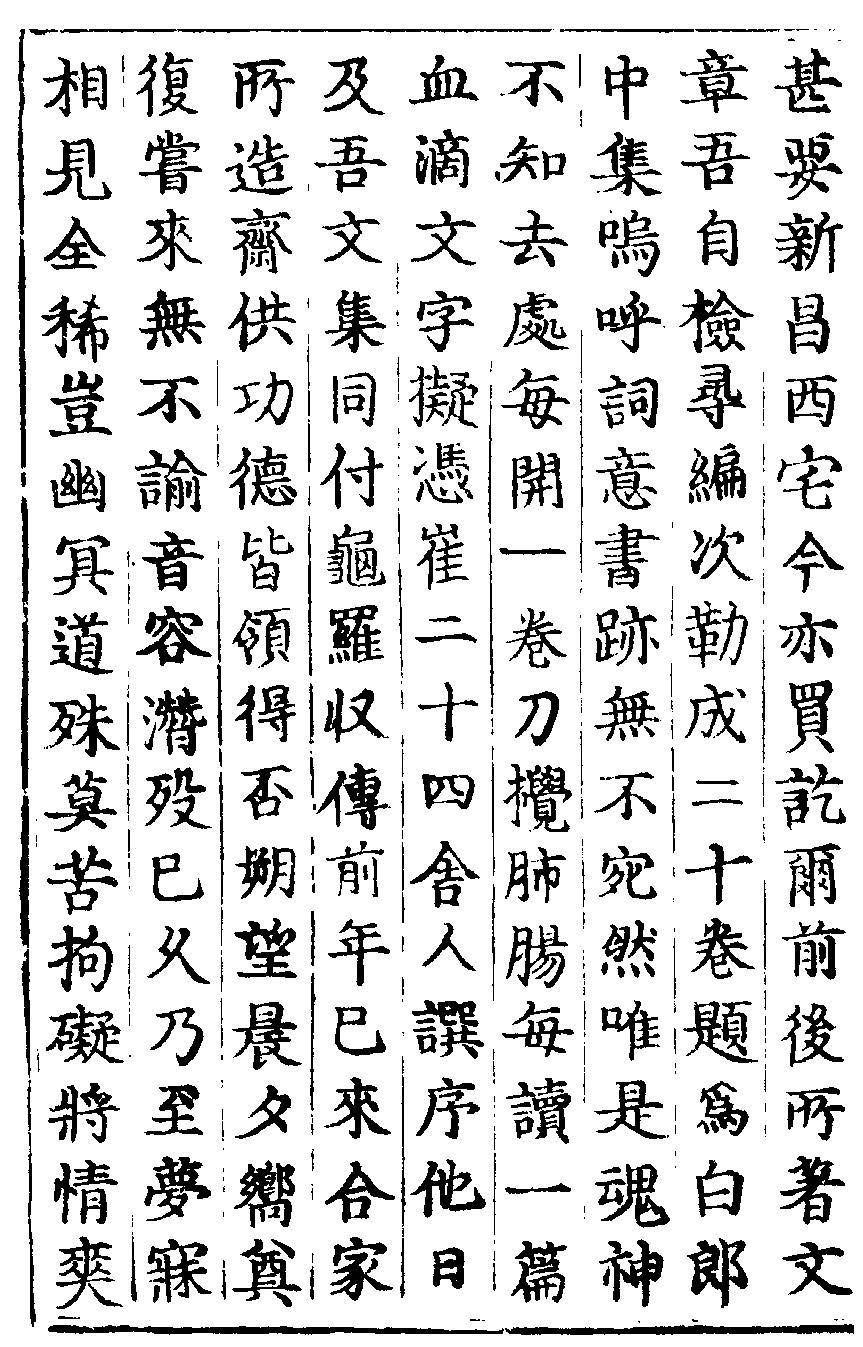 甚要新昌西宅今亦買訖爾前後所著文
章吾自檢尋編次勒成二十卷題爲白郎
中集嗚呼詞意書跡無不宛然唯是魂神
不知去處每開一卷刀攪肺腸每讀一篇
血滴文字擬憑崔二十四舍人譔序他日
及吾文集同付龜羅収傳前年已來合家
所造齋供功德皆領得否朔望晨夕嚮奠
復嘗來無不諭音容潛歿已久乃至夢寐
相見全稀豈幽冥道殊莫苦拘礙將情爽